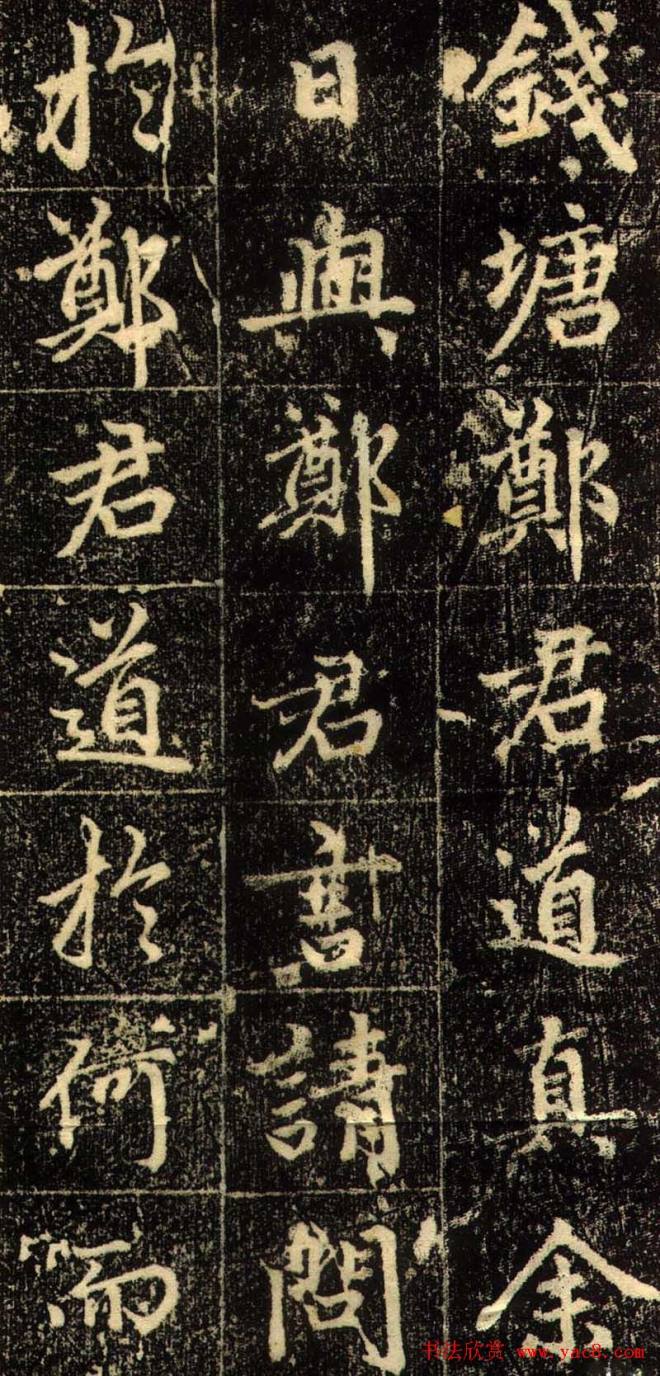 錢塘鄭君道真余
日與鄭君書請問
於鄭君道於何而
书法欣赏 www.yac8.com